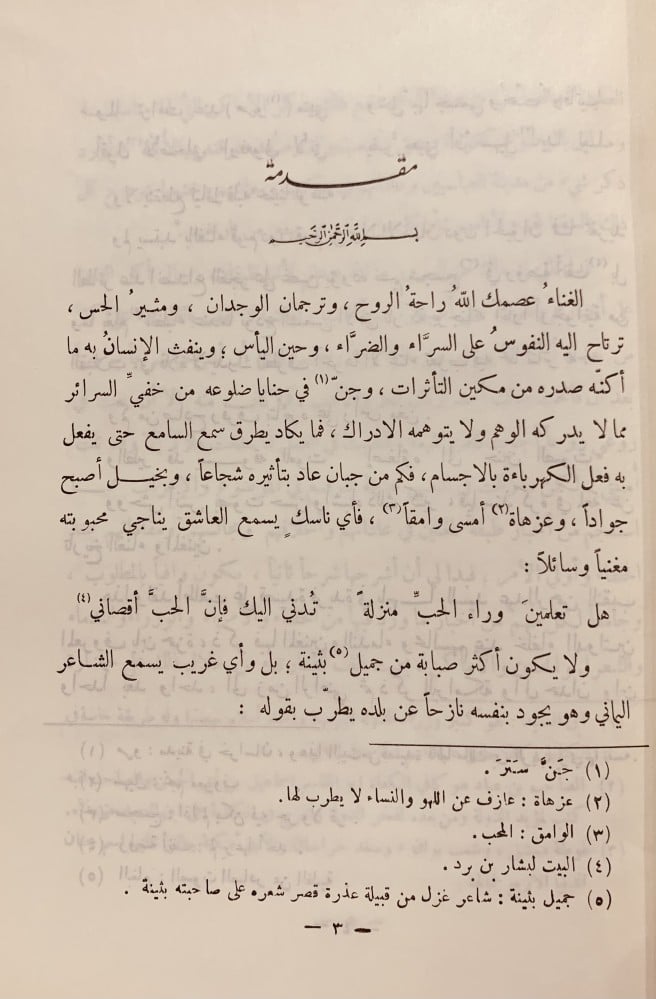 مقدمة
بسم الله الرحمن الرحيم
الغناءُ عصمك اللهُ راحةُ الروح ، وترجمان الوجدان ، ومثيرُ الحس ،
ترتاح اليه النفوسُ على السرَّاء والضرَّاء ، وحين اليأس ؛ وينفث الإنسانُ به ما
أكنّه صدره من مكين التأثرات ، وجنّ (١) في حنايا ضلوعه من خفيِّ السرائر
مما لا يدركه الوهم ولا يتوهمه الادراك ، فما يكاد يطرق سمع السامع حتى يفعل
به فعل الكهرباءة بالاجسام ، فكم من جبان عاد بتأثيره شجاعاً ، وبخيل أصبح
جواداً ، وعزهاة (٢) أمسى وامقاً (٣) ، فأي ناسكٍ يسمع العاشق يناجي محبوبته
مغنياً وسائلاً :
هل تعلمينَ وراء الحبِّ منزلةً تُدني اليك فإنَّ الحبَّ أقصاني (٤)
ولا يكون أكثر صبابة من جميل (٥) بثينة ؛ بل وأي غريب يسمع الشاعر
اليماني وهو يجود بنفسه نازحاً عن بلده يطرّب بقوله :
(١) جَنَّ سَتَرَ .
(٢) عزهاة : عازف عن اللهو والنساء لا يطرب لها .
(٣) الوامق : المحب .
(٤) البيت لبشار بن برد .
(٥) جميل بثينة : شاعر غزل من قبيلة عذرة قصر شعره على صاحبته بثينة .
– ٣ –